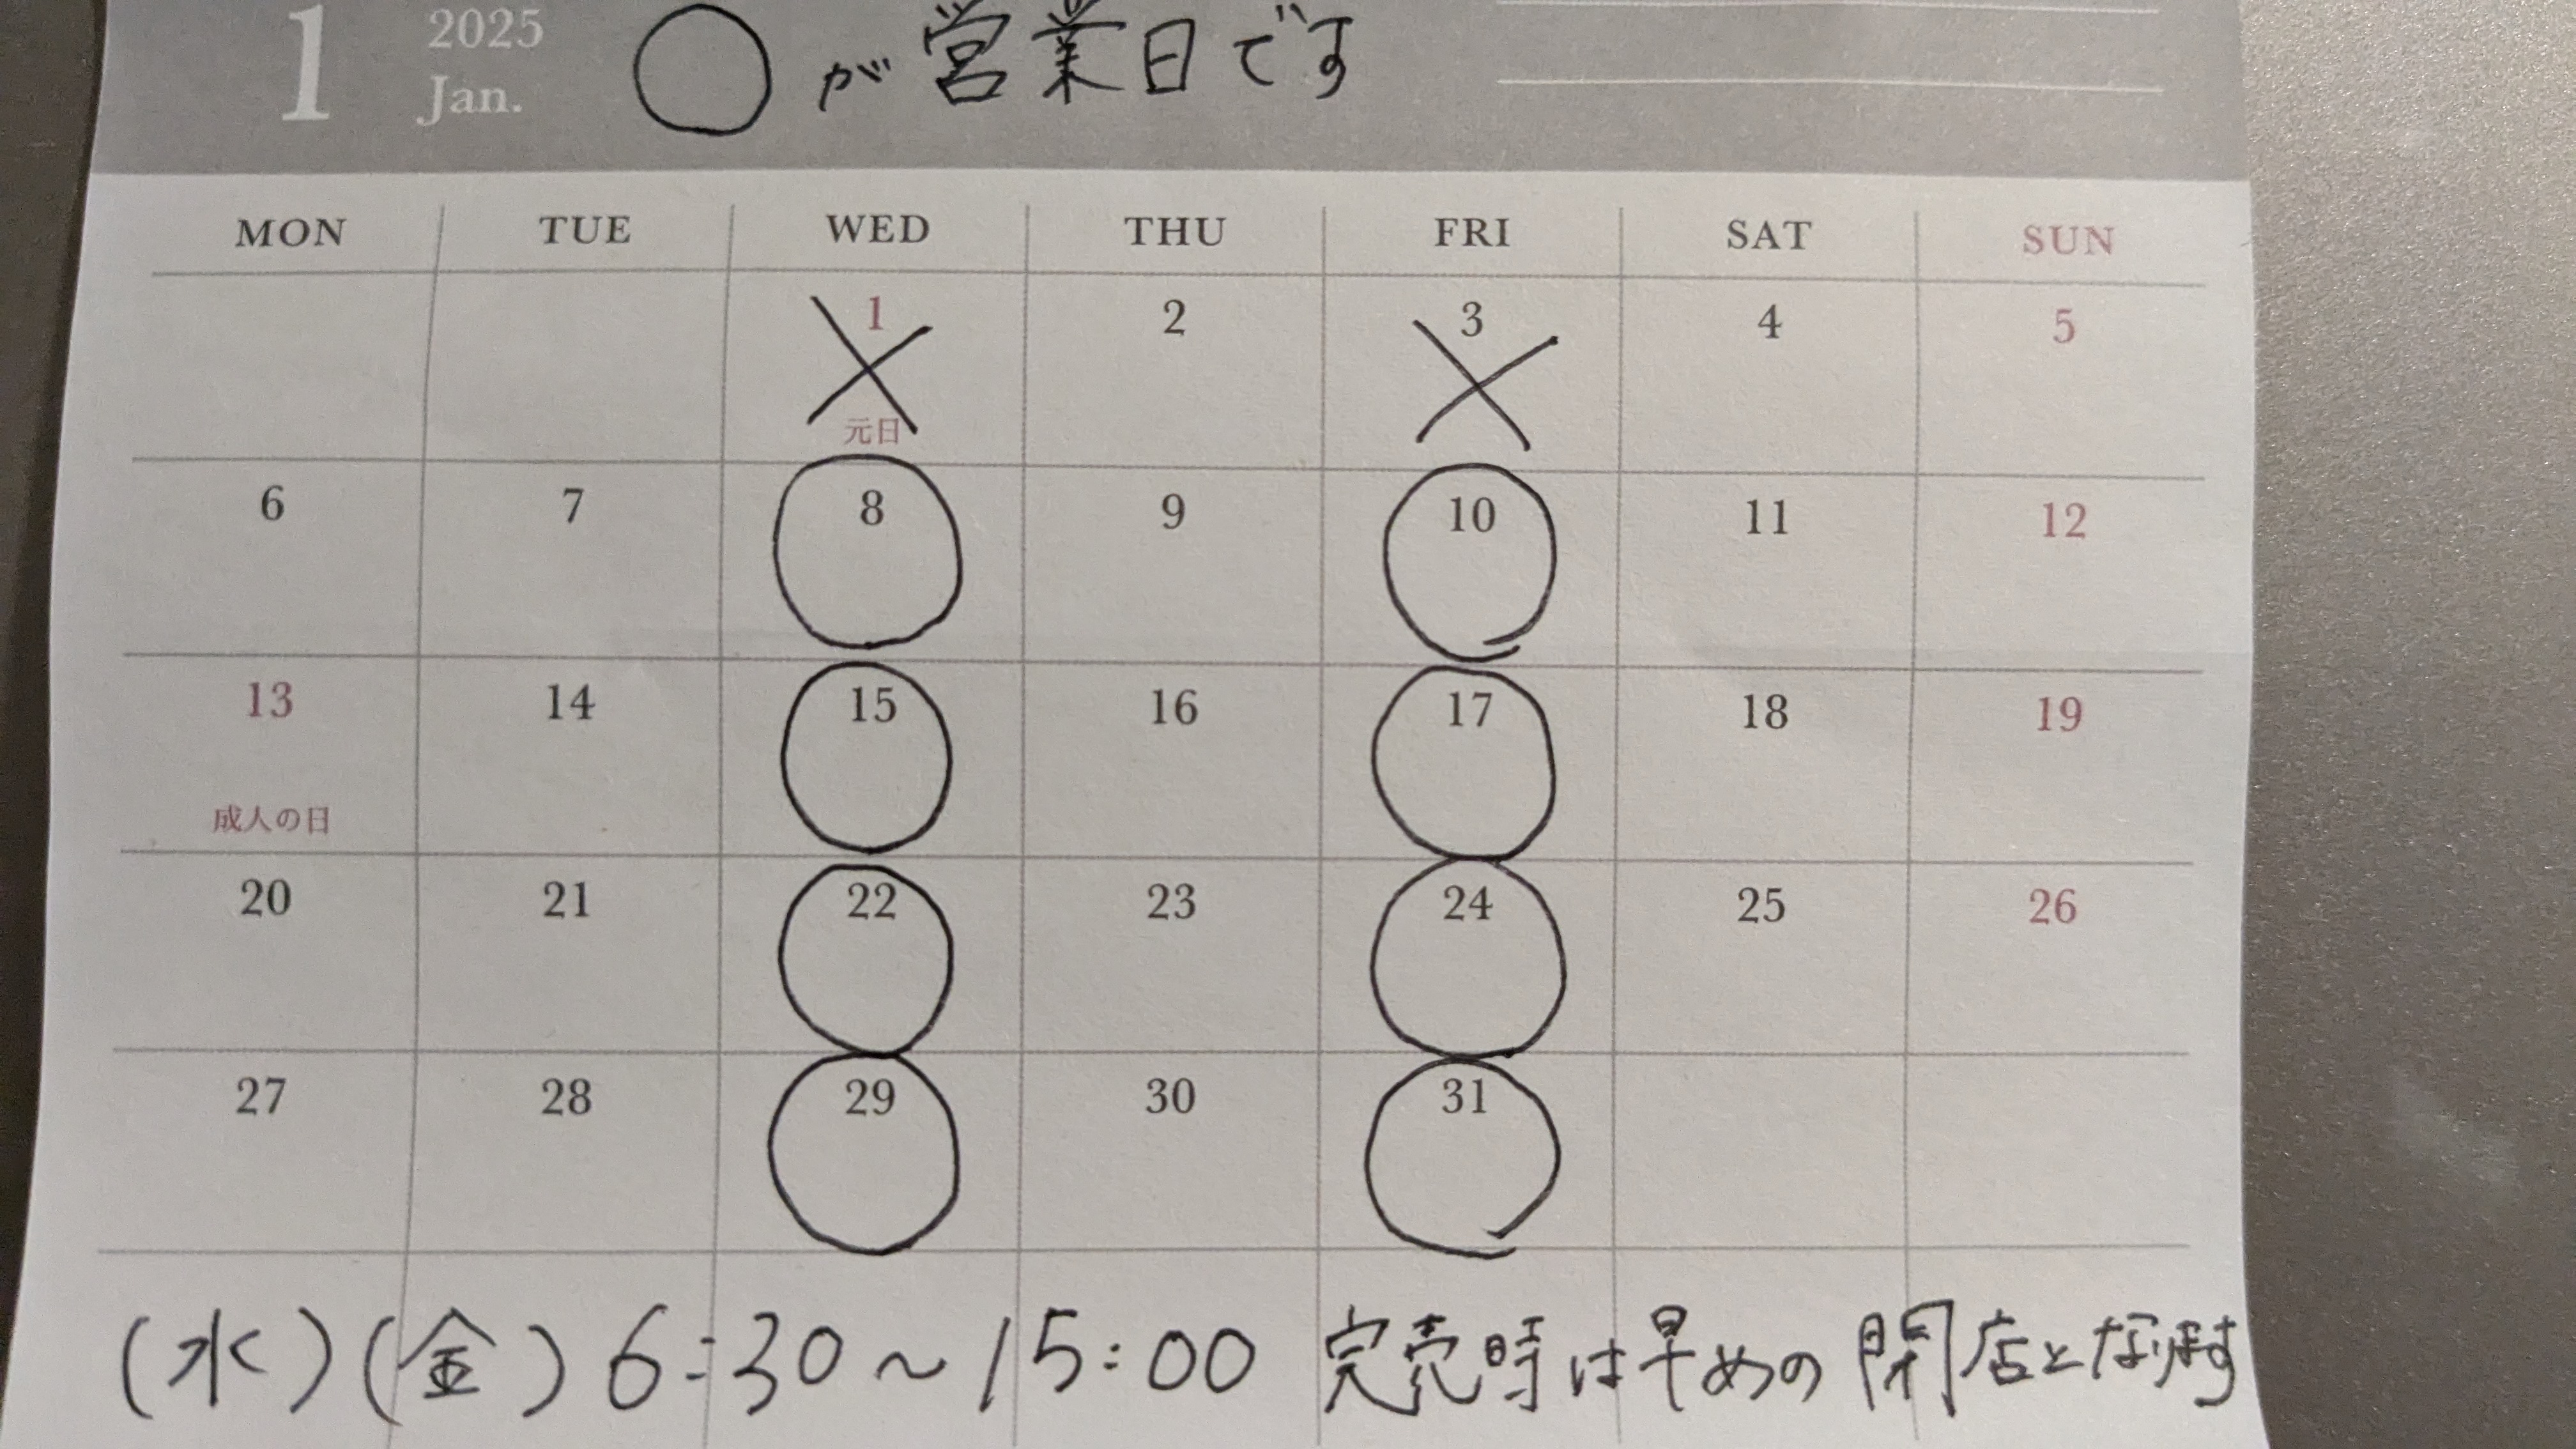 1 2025 ○が営業日です
Jan.
MON TUE WED THU FRI SAT SUN
1 2 3 4 5
元日
6 7 8 9 10 11 12
13 14 15 16 17 18 19
成人の日
20 21 22 23 24 25 26
27 28 29 30 31
(水)(金)6:30~15:00 完売時は早めの閉店となります